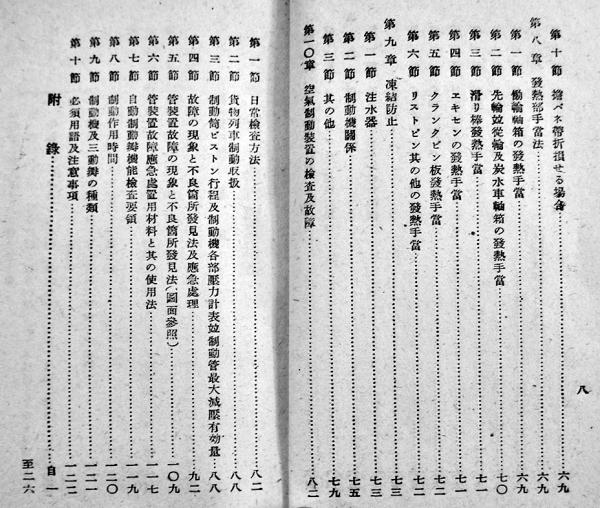 第十節 擔バネ帶折損せる場合……六九
第八章 發熱部手當法……六九
第一節 働輪軸箱の發熱手當……六九
第二節 先輪竝從輪及炭水車軸箱の發熱手當……七〇
第三節 滑リ棒發熱手當……七一
第四節 エキセンの發熱手當……七一
第五節 クランクピン板發熱手當……七二
第六節 リストピン其の他の發熱手當……七二
第九章 凍結防止……七三
第一節 注水器……七三
第二節 制動機關係……七五
第三節 其の他……七九
第一〇章 空氣制動裝置の檢査及故障……八二
八
第一節 日常檢査方法……八二
第二節 貨物列車制動取扱……八八
第三節 制動筒ピストン行程及制動機各部壓力計表竝制動管最大減壓有効量……八八
第四節 故障の現象と不良箇所發見法及應急處理……九二
第五節 管裝置故障の現象と不良箇所發見法(圖面參照)……一〇九
第六節 管裝置故障應急處置用材料と其の使用法……一一七
第七節 自動制動瓣機能檢査要領……一一九
第八節 制動作用時間……一二〇
第九節 制動機及三動瓣の種類……一二一
第十節 必須用語及注意事項……一二二
附錄……自一
至二六